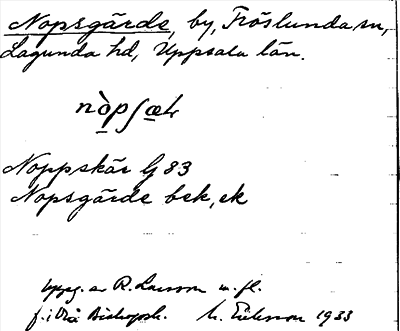 Nopsgärde, by, Fröslunda sn,
Lagunda hd, Uppsala län.
nò̱pʃæ̱r
Noppskär G 83
Nopsgärde bek, ek
Uppg. av R. Larsson m. fl.
f. i Biskopsk. M. Eriksson 1933